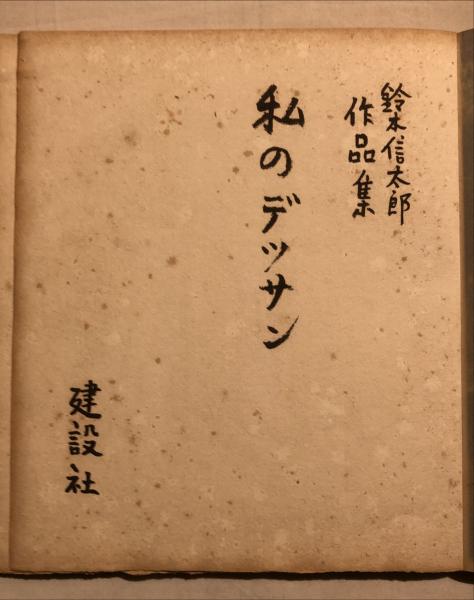 鈴木信太郎
作品集
私のデッサン
建設社